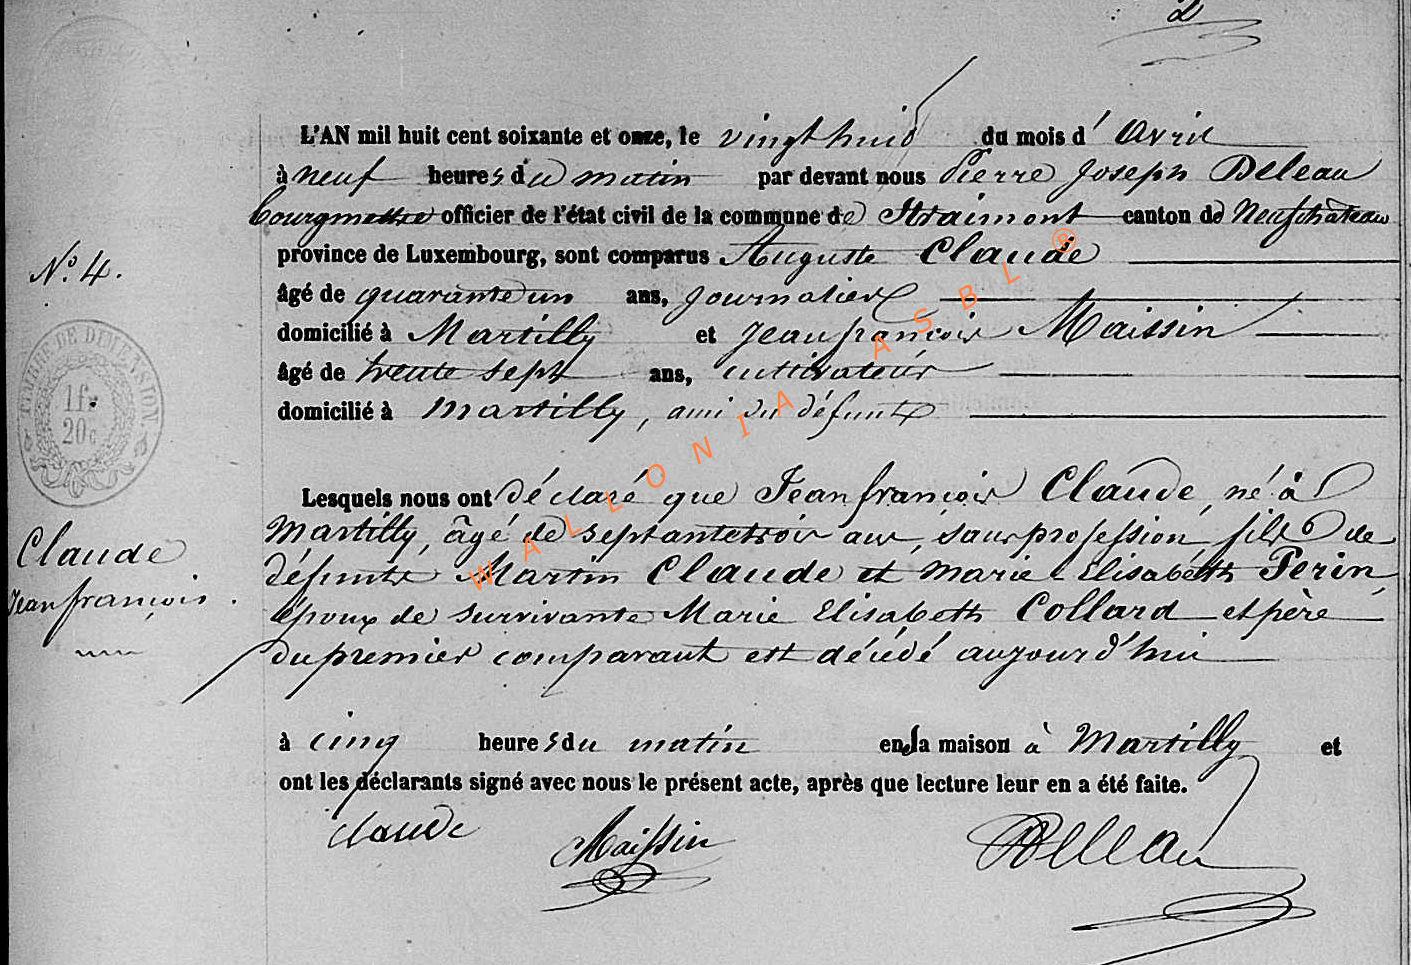 2
L'AN mil huit cent soixante et onze, le vingt huit du mois d'Avril
à neuf heures du matin par devant nous Pierre Joseph Deleau
bourgmestre officier de l'état civil de la commune de Straimont canton de Neufchâteau
province de Luxembourg, sont comparus Auguste Claude
âgé de quarante un ans, journalier
domicilié à Martilly et Jean françois Maissin
âgé de trente sept ans, cultivateur
domicilié à Martilly, ami du défunt
Lesquels nous ont déclaré que Jean françois Claude, né à
Martilly, âgé de septante trois ans, sans profession fils de
défunts Martin Claude et Marie Elisabeth Perin,
époux de survivante Marie Elisabeth Collard et père
du premier comparant est décédé aujourd'hui
à cinq heures du matin en sa maison à Martilly et
ont les déclarants signé avec nous le présent acte, après que lecture leur en a été faite.
Claude Maissin Deleau
N° 4.
TIMBRE DE DIMENSION
1 fr.
20 c
Claude
Jean françois.
WALLONIA ASBL ®